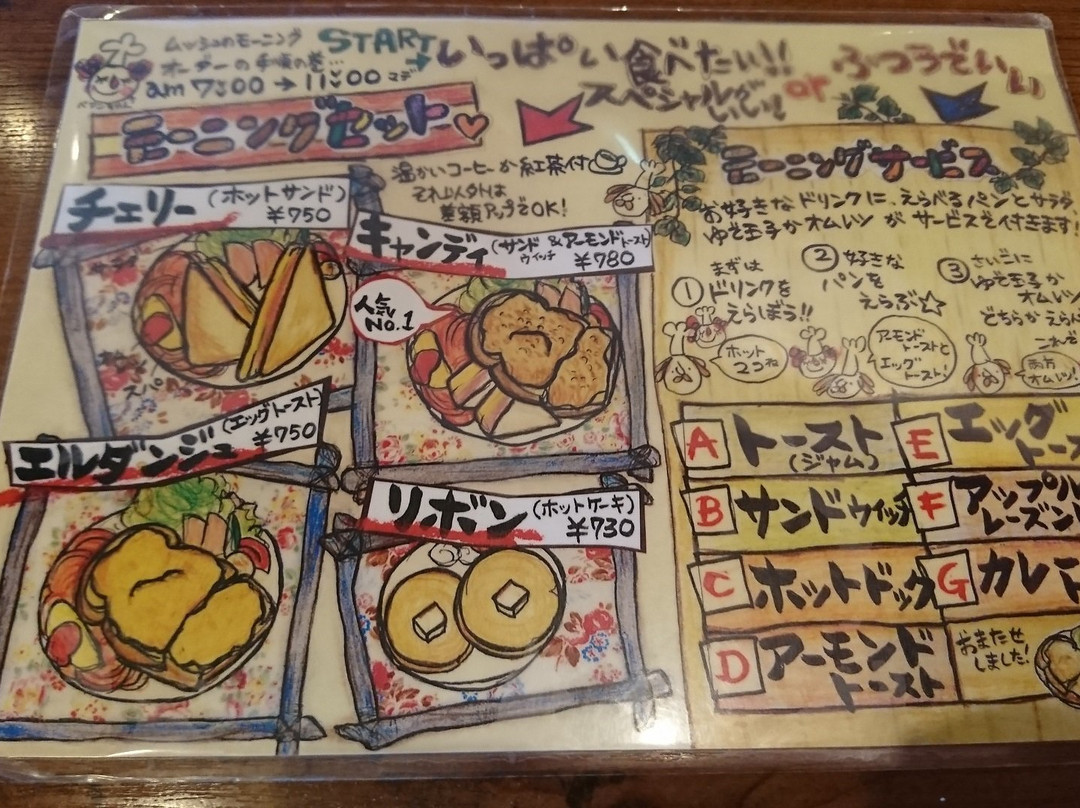 ムッシュのモーニング
オーダーの手順の巻…
am 7:00 → 11:00 マデ
START
いっぱい食べたい!!
スペシャルがいい!
or
ふつうでいい
モーニングセット
温かいコーヒーか紅茶付
それ以外は
差額アップでOK!
チェリー (ホットサンド)
¥750
キャンディ (サンドウィッチ&アーモンドトースト)
¥780
人気
No.1
スパ
エルダンジュ (エッグトースト)
¥750
リボン (ホットケーキ)
¥730
モーニングサービス
お好きなドリンクに、えらべるパンとサラダ、
ゆで玉子かオムレツ が サービスで付きます!
① まずは
ドリンクを
えらぼう!!
ホット
2つね
② 好きな
パンを
えらぶ☆
アモンド
トーストと
エッグ
トースト!
③ さいごに
ゆで玉子か
オムレツ
どちらかえら
両方
オムレツ!
A トースト
(ジャム)
B サンドウィッチ
C ホットドック
D アーモンド
トースト
E エッグ
トース
F アップル
レーズン
G カレー
おまたせ
しました!